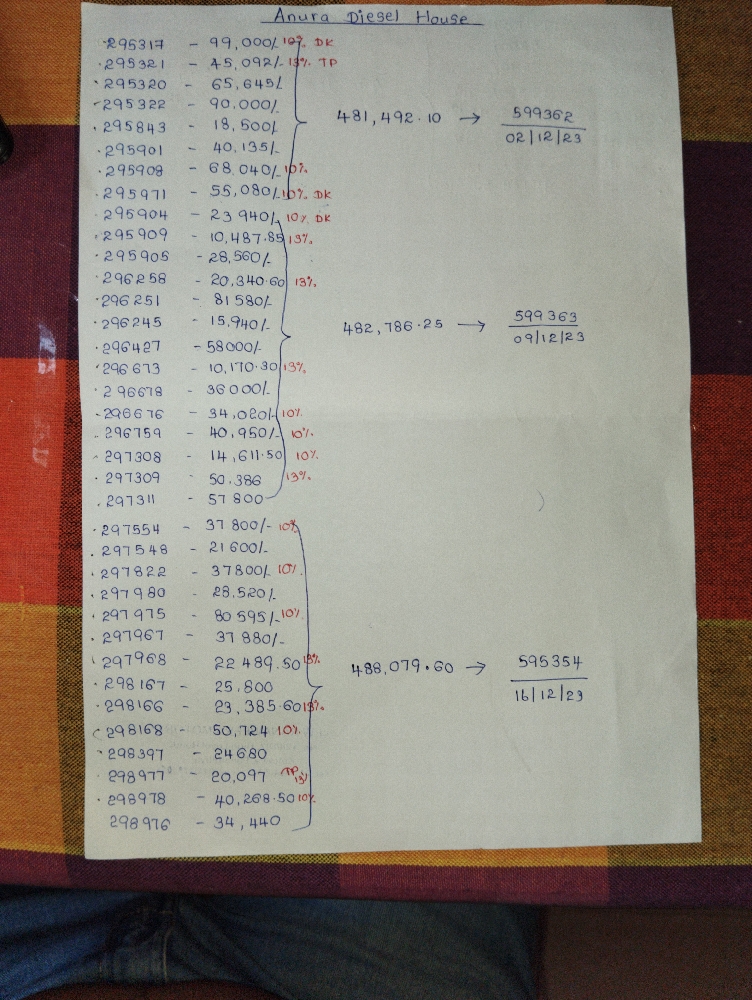 Anura Diesel House
295317 - 99,000/- 10% DK
295321 - 45,092/- 13% TP
295320 - 65,645/-
295322 - 90,000/-
295843 - 18,500/-
481,492.10 → 599362
02/12/23
295901 - 40,135/-
295908 - 68,040/- 10%
295971 - 55,080/- 10% DK
295904 - 23 940/- 10% DK
295909 - 10,487.85 13%
295905 - 28,560/-
296258 - 20,340.60 13%
296251 - 81 580/-
296245 - 15,940/-
482,786.25 → 599363
09/12/23
296427 - 58000/-
296673 - 10,170.30 13%
296678 - 36000/-
296676 - 34,020/- 10%
296759 - 40,950/- 10%
297308 - 14,611.50 10%
297309 - 50.386 13%
297311 - 57 800
297554 - 37 800/- 10%
297548 - 21600/-
297822 - 37800/- 10%
297980 - 28,520/-
297975 - 80 595/- 10%
297967 - 37 880/-
297968 - 22 489.50 13%
488,079.60 → 595354
16/12/23
298167 - 25.800
298166 - 23,385.60 13%
298168 - 50,724 10%
298397 - 24680
298977 - 20,097 TP 13%
298978 - 40,268.50 10%
298976 - 34,440